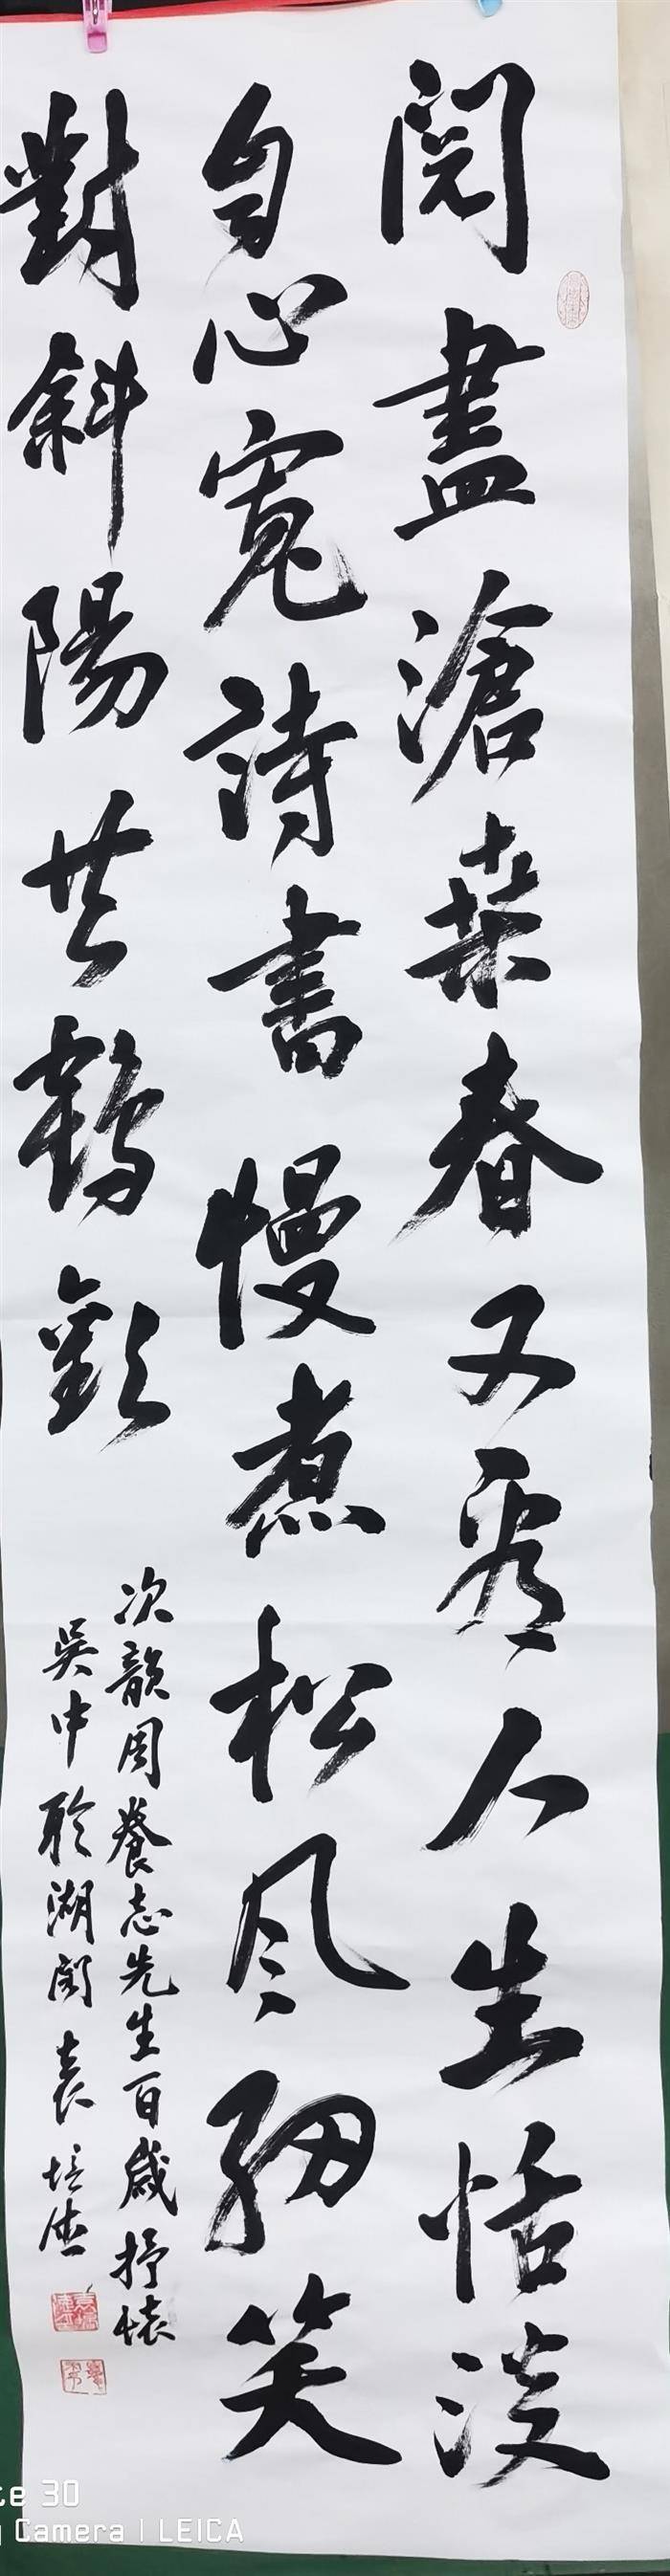 閱盡滄桑春又看人生恬淡
自心寬詩書慢煮松风細笑
對斜陽共鶴歡
次韻周養志先生百歲抒懷
吳中聆湖閣袁培德
te 30
Camera | LEICA